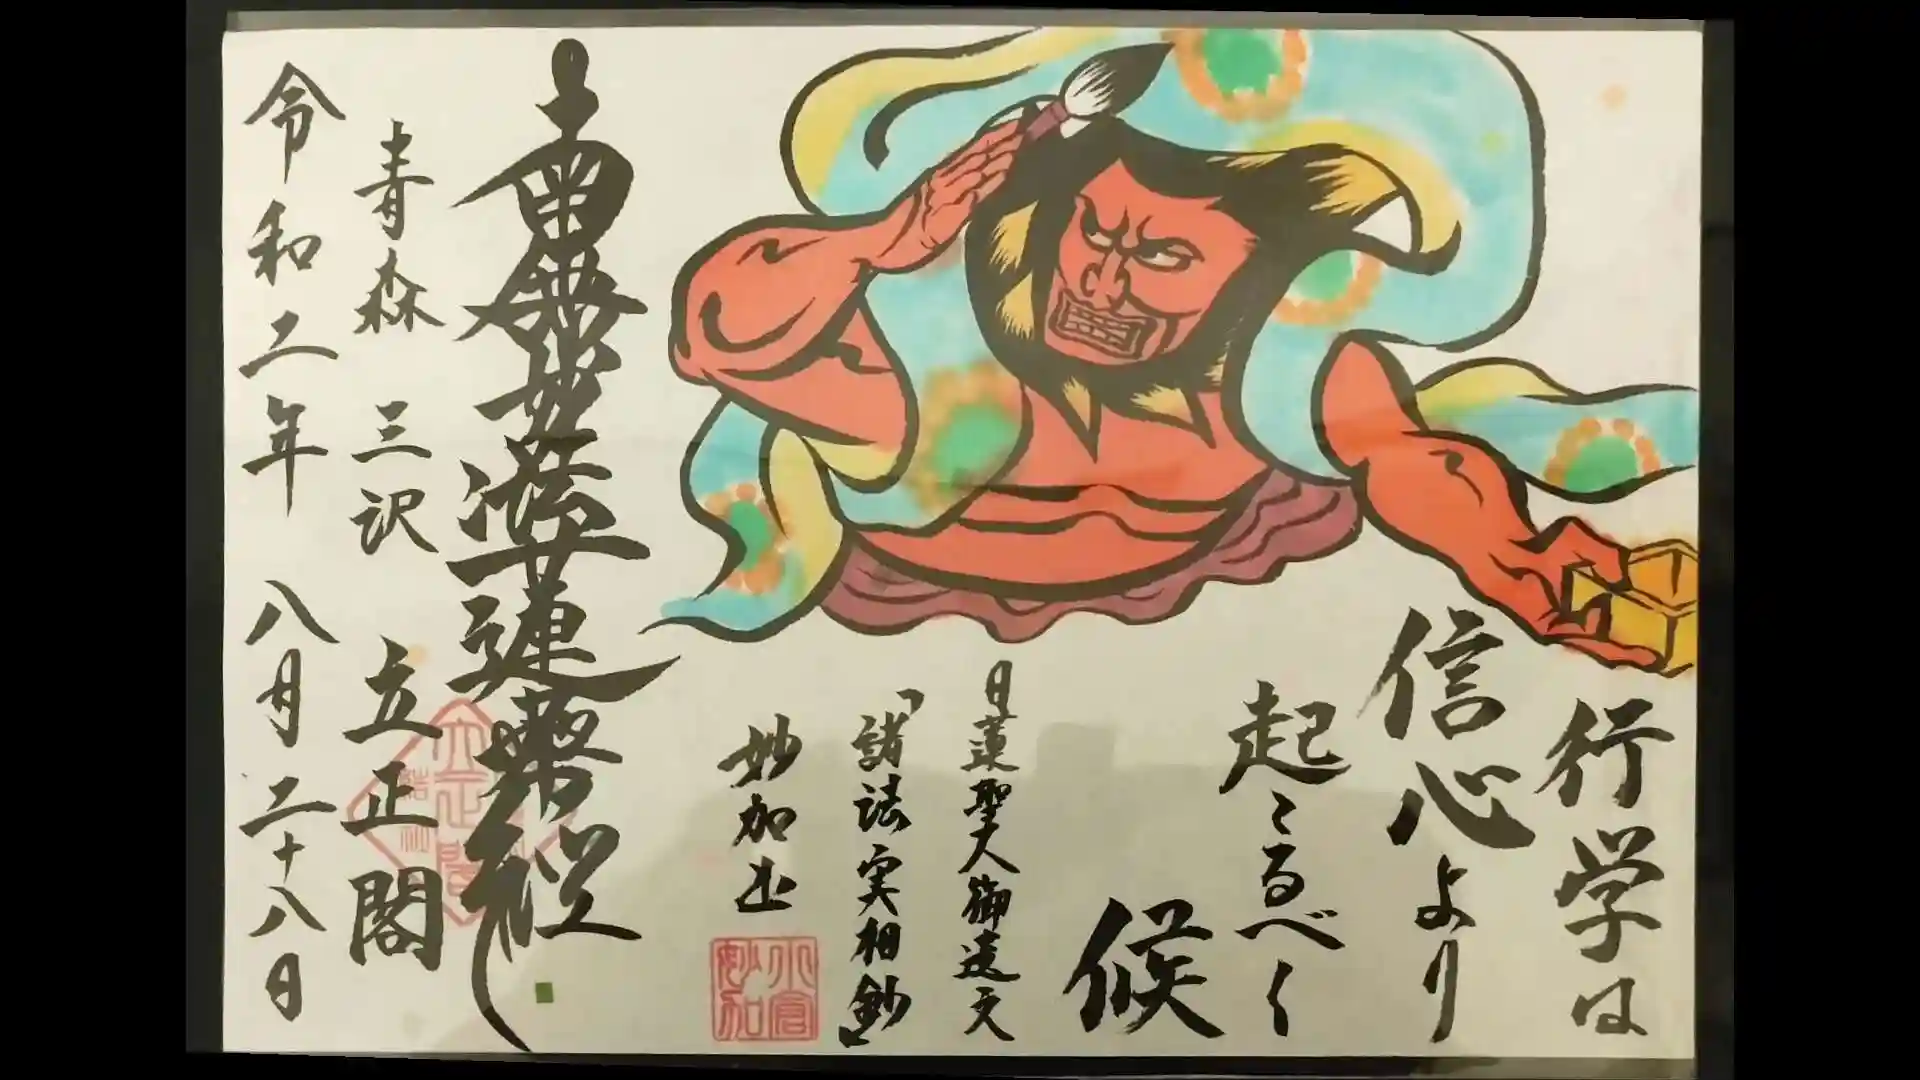 行学は
信心より
起こるべく
候
日蓮聖人御遺文
「諸法実相鈔」
妙加
小倉
妙加
南無妙法蓮華経
青森 三沢 立正閣
令和二年 八月二十八日